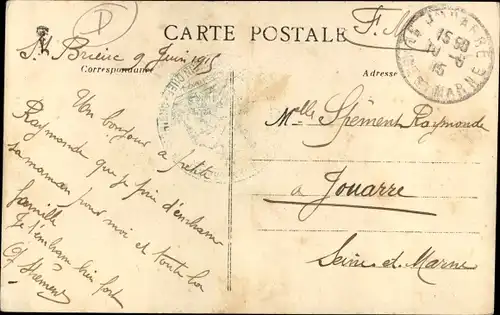 CARTE POSTALE
F.
D
St Brieuc 9 Juin 1915
Correspondance
Adresse
JOUARRE
15 30
10 -6
15
MARNE
Un bonjour a petite
Raymonde que je prie d'embrasser
sa maman pour moi et toute la
famille
Je t'embrasse bien fort
Melle Raymonde
à Jouarre
Seine-et-Marne